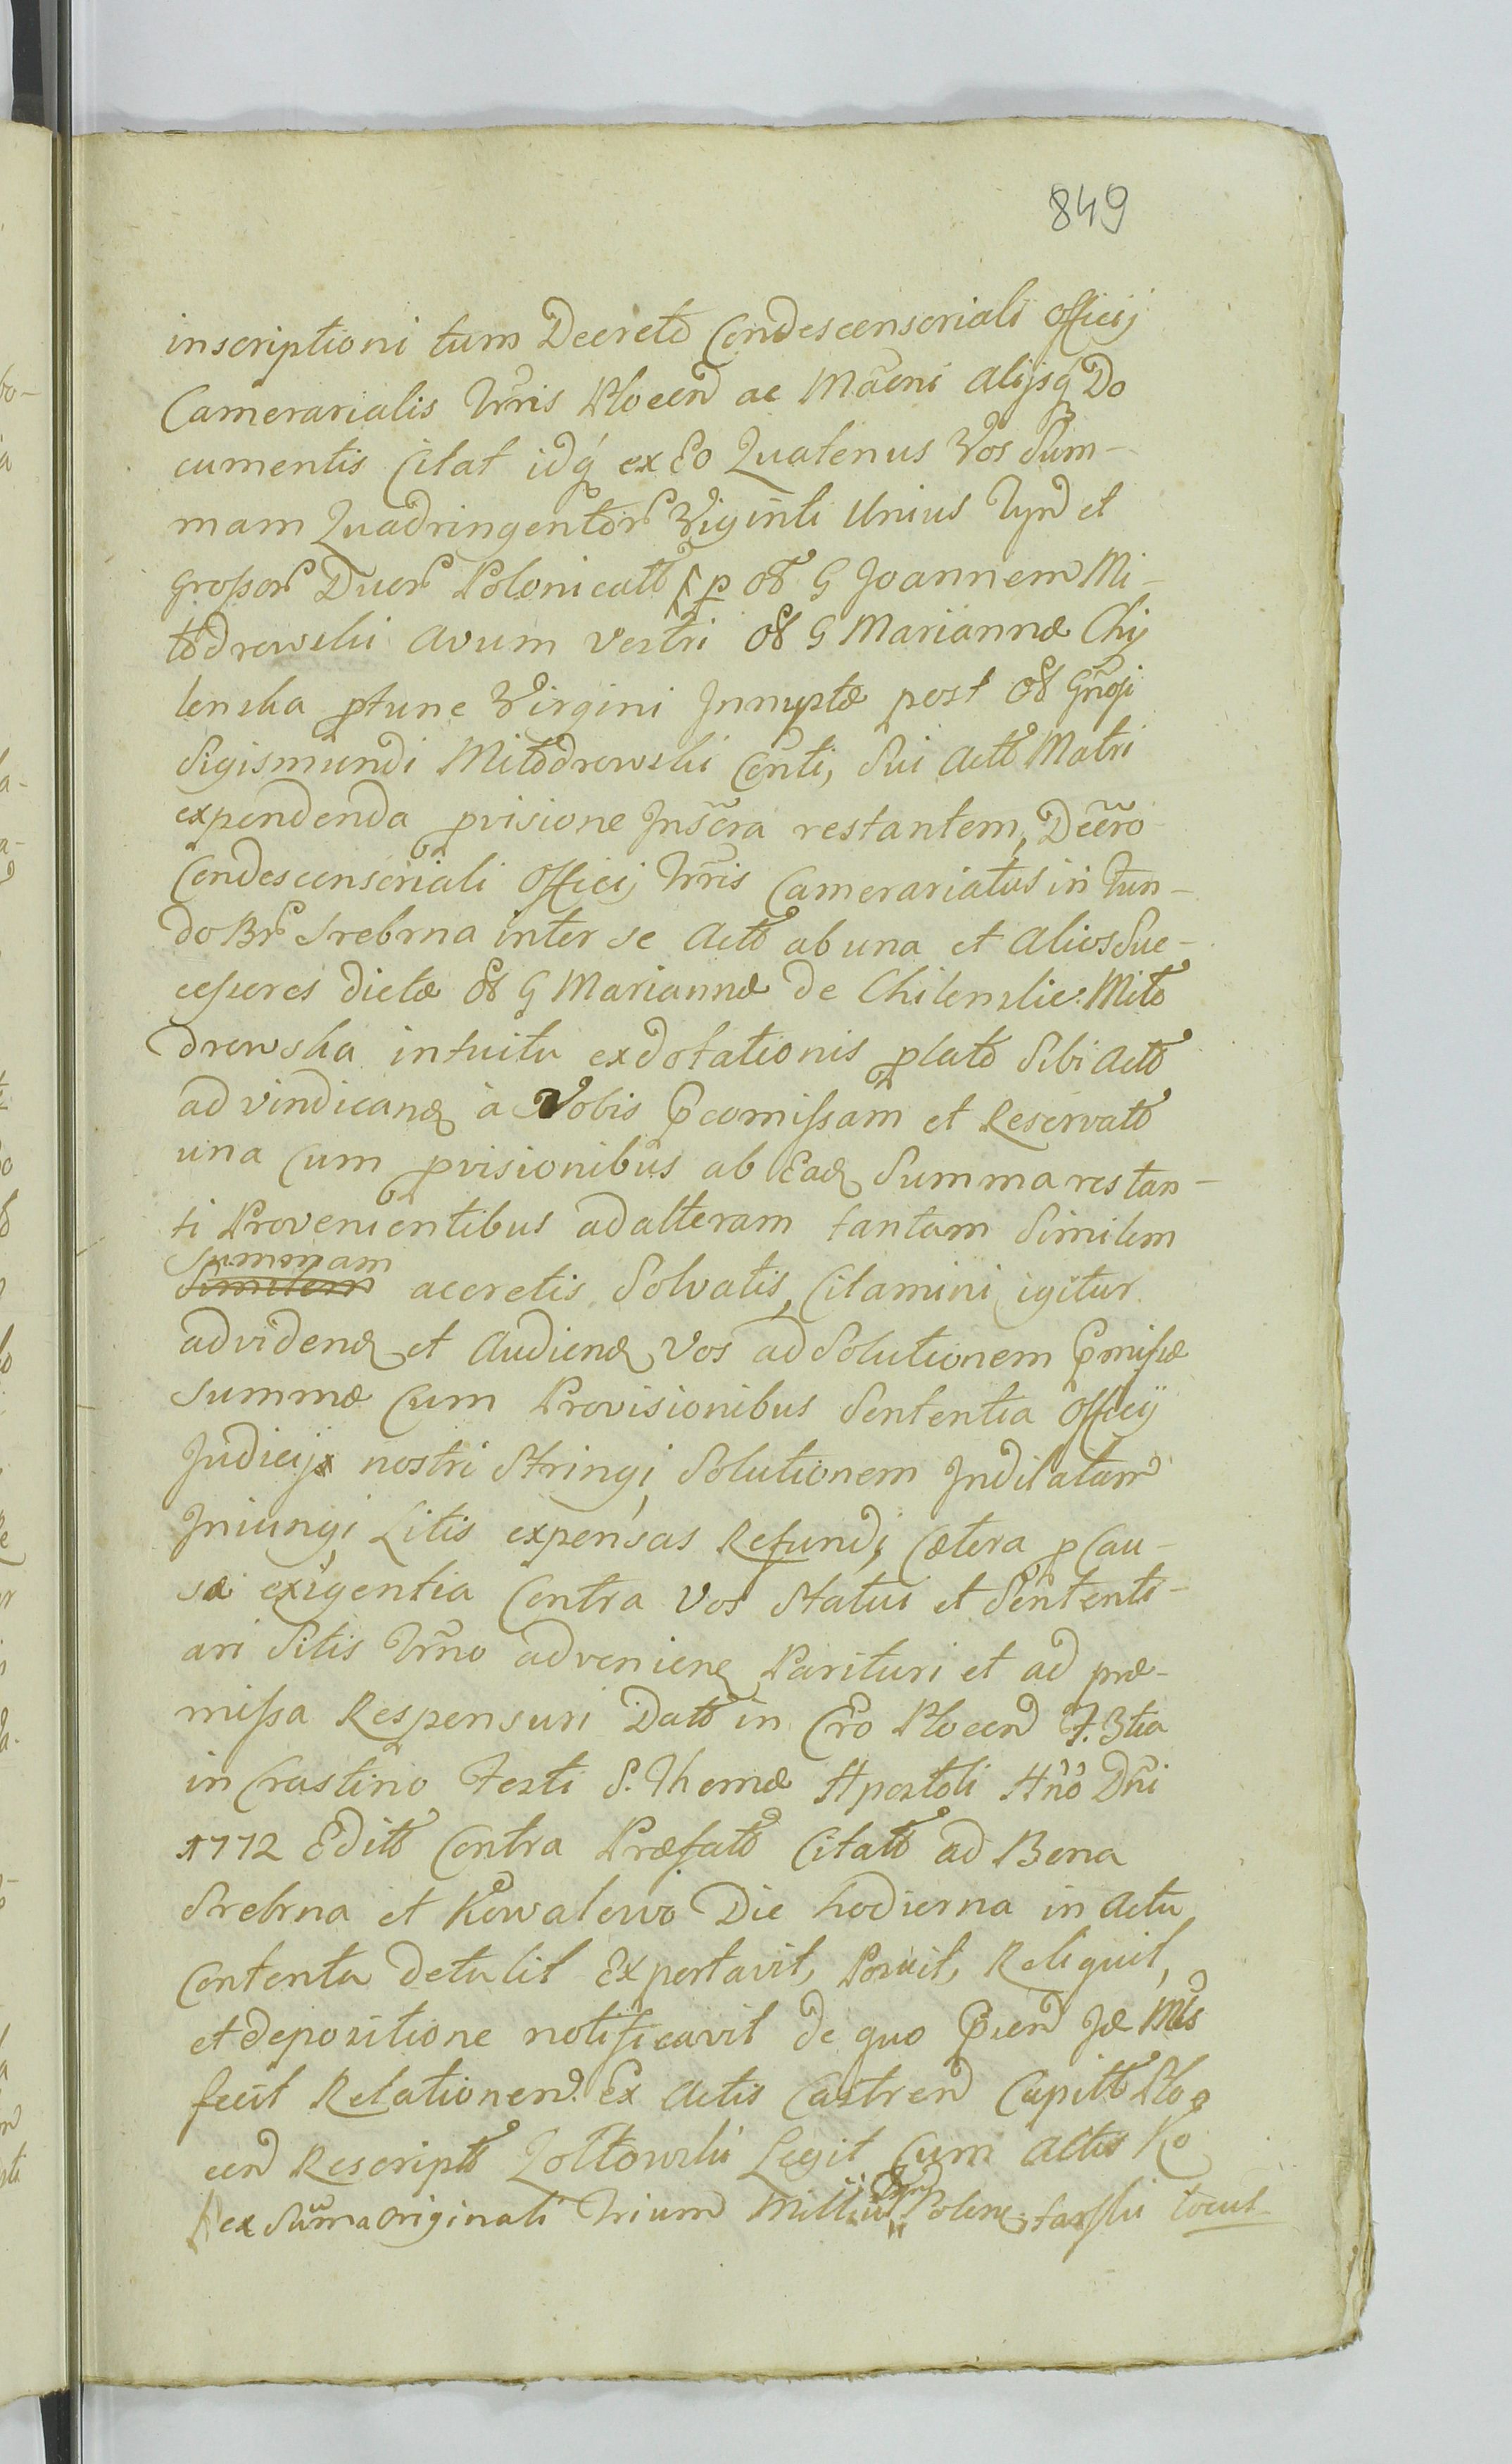 849
inscriptioni tum Decreto Condescensoriali Officij
Camerarialis Trris Plocen ac Mãeni alijsq́ Do
cumentis Citat idq́ ex Eo Quatenus Vos Sum-
mam Quadringentor Viginti Unius Tyn et
Grossor Duor Polonicatt p ol G Joannem Mi-
łodrowski avum vestri ol G Mariannæ Chy
lenska ptunc Virgini Innuptæ post ol Gñosi
Sigismundi Miłodrowski Conti, Sui Actt Matri
expendenda pvisione Inscra restantem, Decro
Condescensoriali Officij Trris Camerariatus in Fun-
do Br Srebrna inter se Actt ab una et Alios Suc-
cessores dictæ ol G Mariannæ de Chilenskie: Miło
drowska intuitu exdotationis plato Sibi Actt
ad vindicand à Vobis Pcomissam et Reservatt
una Cum pvisionibus ab Ead Summa restan-
ti Provenientibus ad alteram tantam Similem
Summam
Similem accretis Solvatis, Citamini igitur
ad vidend et Audiend Vos ad Solutionem Pmissæ
Summæ Cum Provisionibus Sententia Officij
Judicij nostri Stringi, Solutionem Indilatam
Iniungi Litis expensas Refundi, Cætera p Cau-
sæ exigentia Contra Vos Statui et Sententi-
ari Sitis Trmo advenien Parituri et ad præ-
missa Responsuri Datt in Cro Plocen F. 3tia
in Crastino Festi S. Thomæ Apostoli Añõ Dñi
1772 Editt Contra Præfatt Citatt ad Bona
Srebrna et Kowalewo Die hodierna in Actu
Contenta detulit Exportavit, Posuit, Reliquit,
et depositione notificavit de quo Psen Jdæ Mñs
fecit Relationem. Ex Actis Castren Capitt Plo
cen Rescript Zołtowski Legit Cum Actis Ko
ex Suma Originali Trium Milliu Tyn Polon tarski Locus